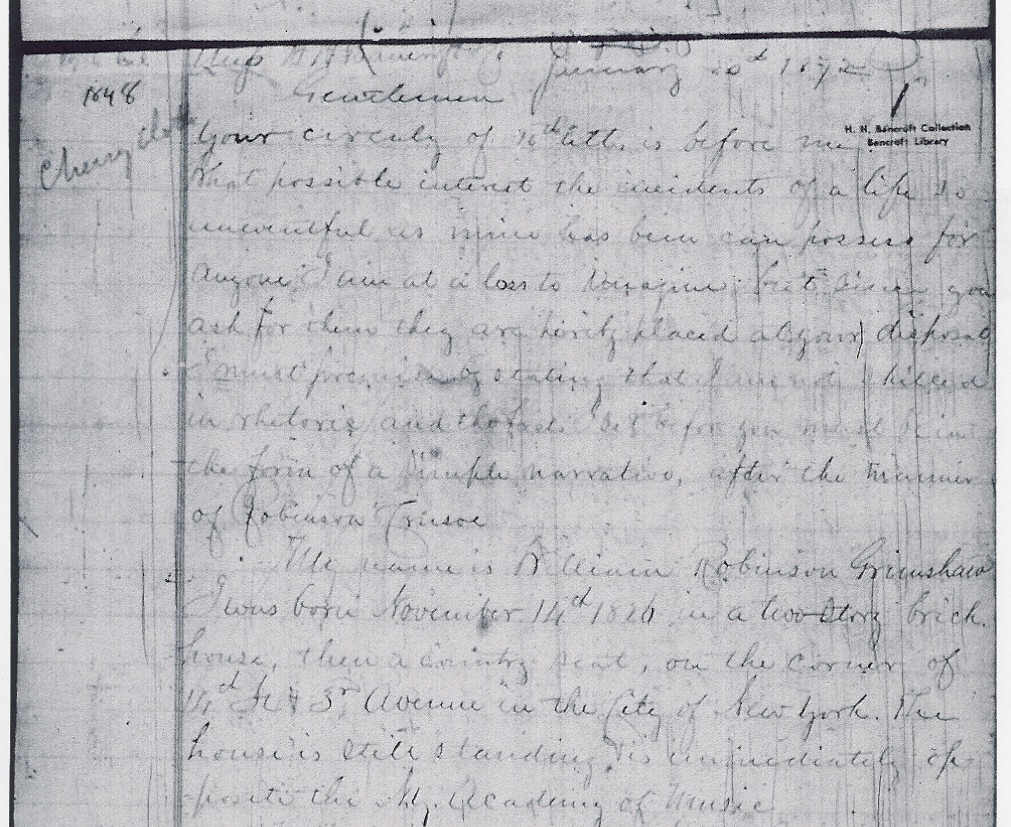 January 20th 1872
1848
Gentlemen
Cherry
H. H. Bancroft Collection
Bancroft Library
Your of is before me
What possible interest the incidents of a life so
uneventful as mine has been can possess for
anyone I am at a loss to imagine, but since you
ask for them they are placed at your disposal
I must premise by stating that I am not skilled
in rhetoric and the facts set before you must be in
the form of a simple narrative, after the manner
of Robinson Crusoe
My name is William Robinson Grimshaw
I was born November 14th 1826 in a two story brick
house, then a country seat, on the corner of
14th St & 3rd Avenue in the City of New York. The
house is still standing, is immediately op-
posite the Academy of Music